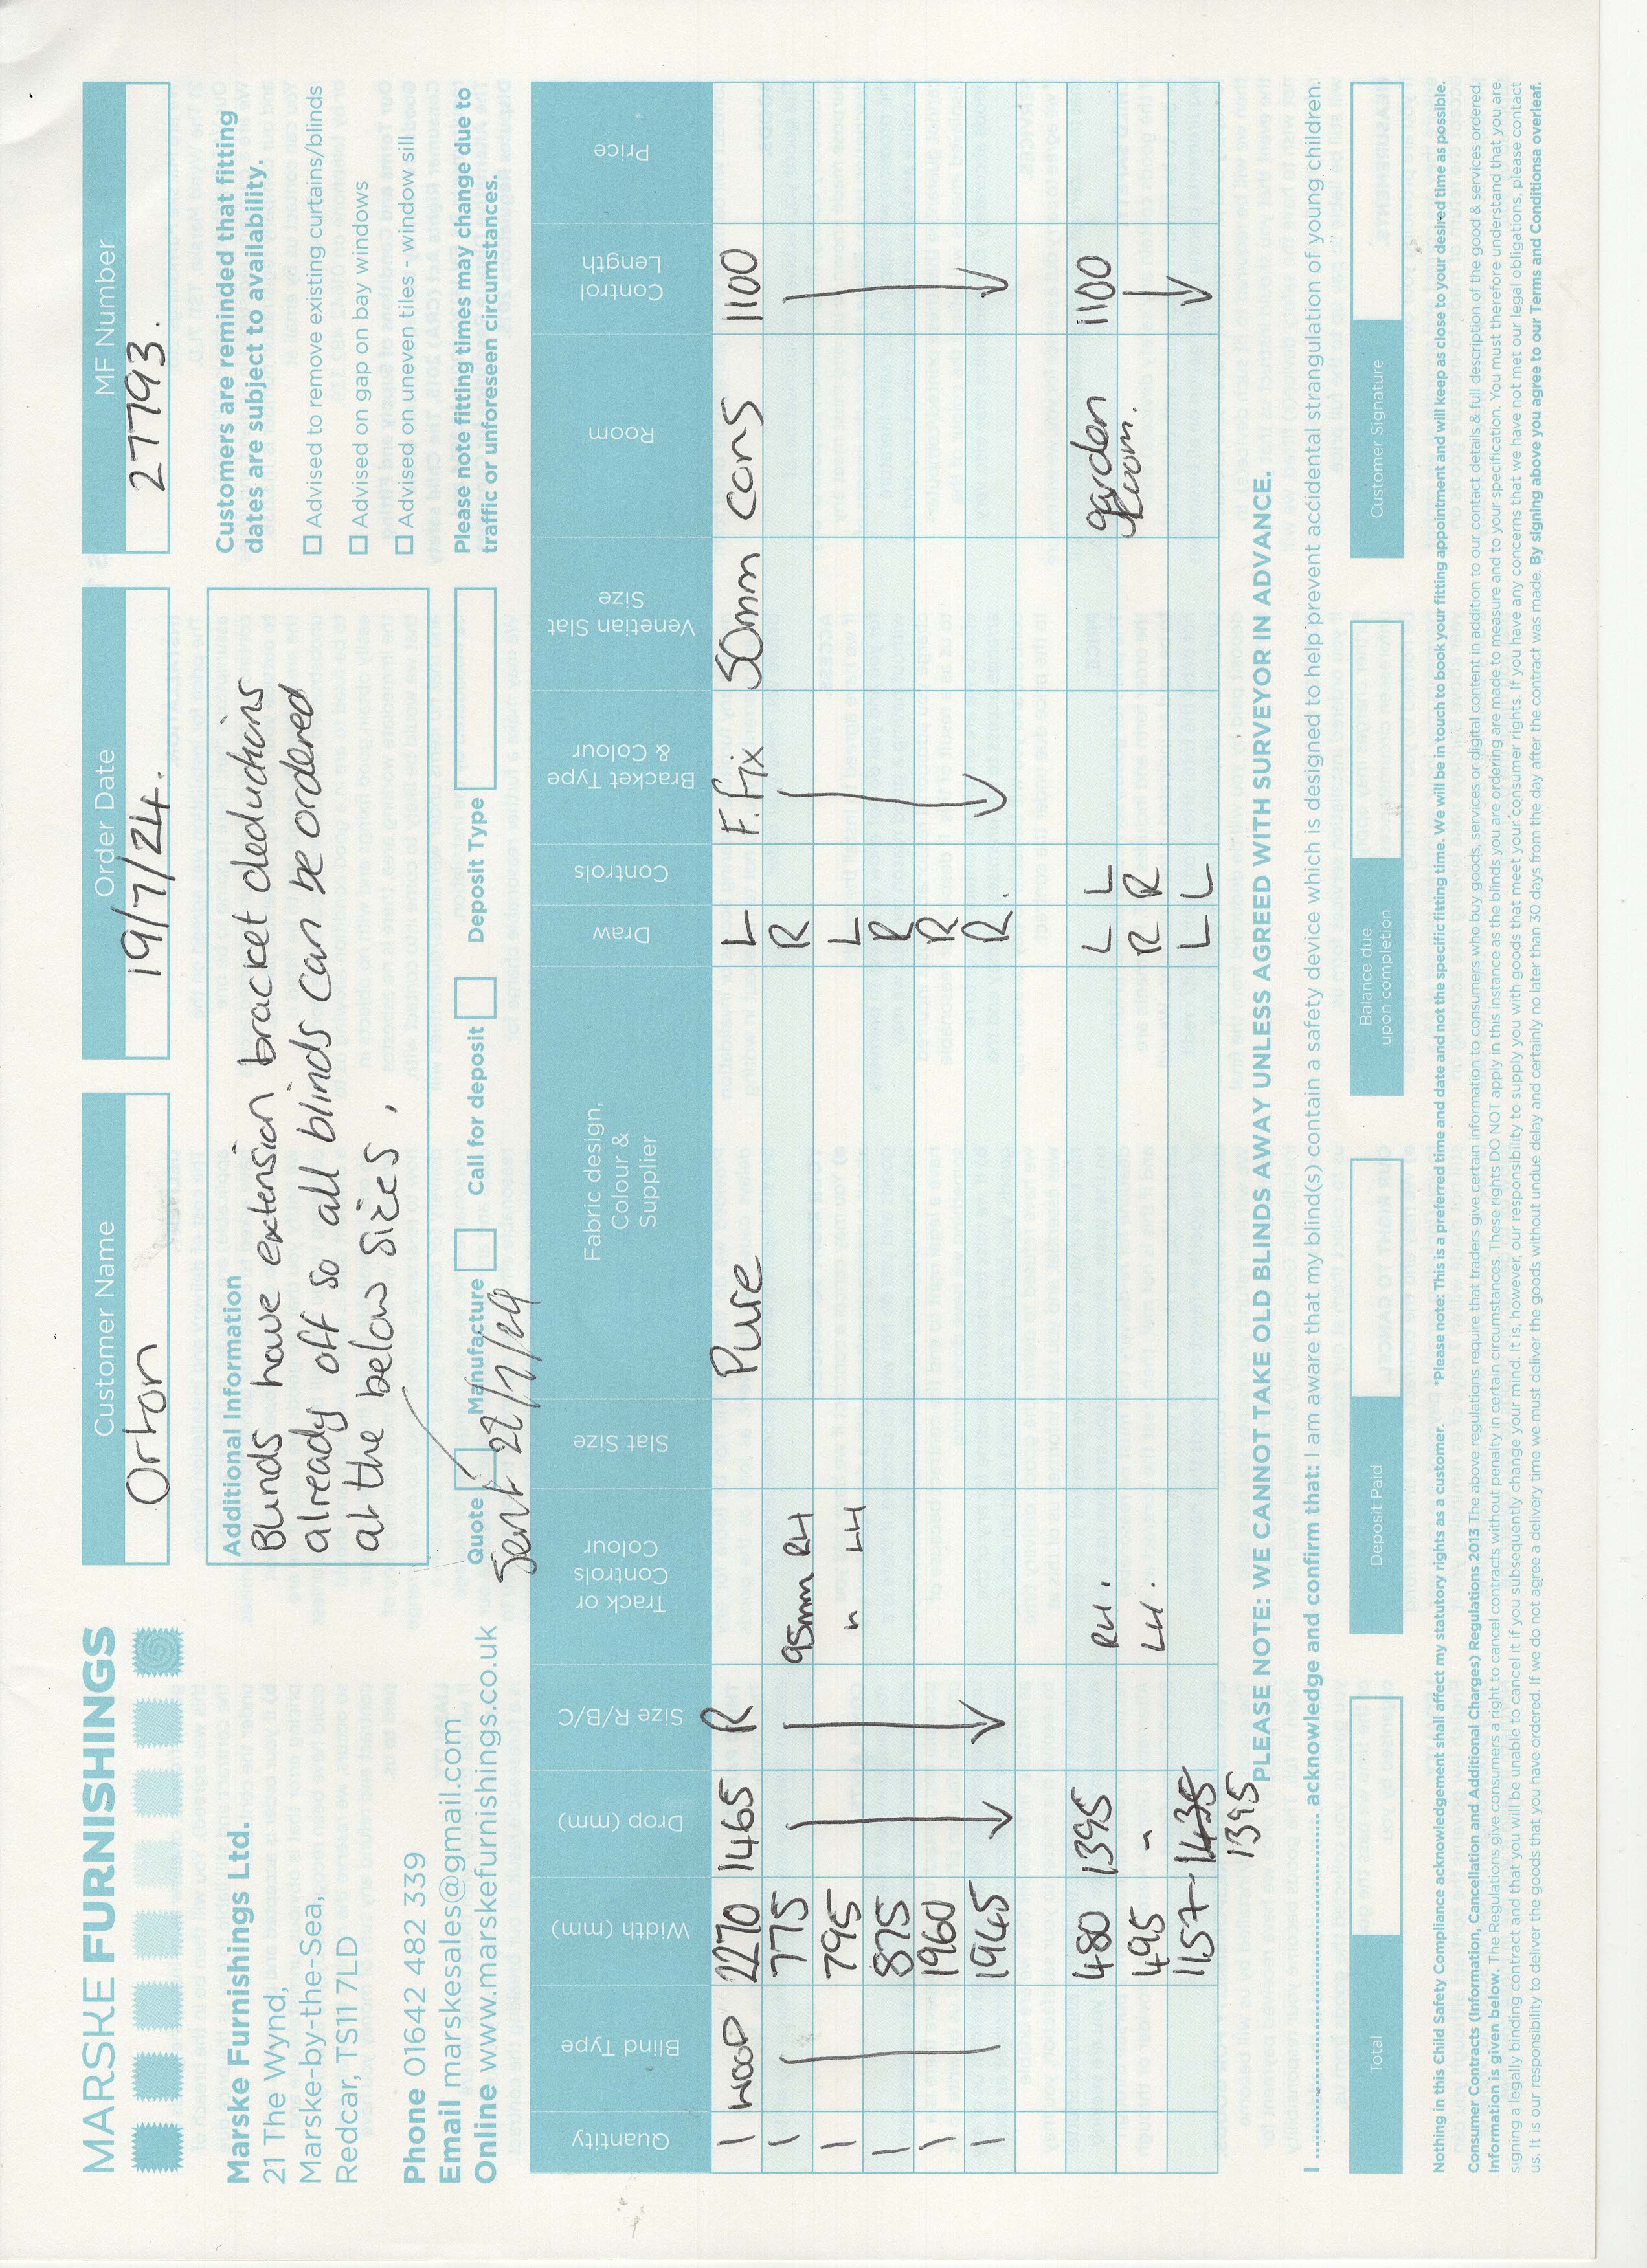 MARSKE FURNISHINGS
Marske Furnishings Ltd.
21 The Wynd,
Marske-by-the-Sea,
Redcar, TS11 7LD
Phone 01642 482 339
Email marskesales@gmail.com
Online www.marskefurnishings.co.uk
Customer Name
Orton
Order Date
19/7/24.
MF Number
27793.
Additional Information
Blinds have extension bracket deductions
already off so all blinds can be ordered
at the below sizes.
Quote Manufacture Call for deposit Deposit Type
Sent 22/7/24
Customers are reminded that fitting
dates are subject to availability.
Advised to remove existing curtains/blinds
Advised on gap on bay windows
Advised on uneven tiles - window sill
Please note fitting times may change due to
traffic or unforeseen circumstances.
Quantity Blind Type Width (mm) Drop (mm) Size R/B/C Track or Controls Colour Slat Size Fabric design, Colour & Supplier Draw Controls Bracket Type & Colour Venetian Slat Size Room Control Length Price
1 WOOD 2270 1465 R Pure L F.Fix 50mm cons 1100
1 775 95mm RH R
1 795 " LH L
1 875 R
1 1960 R
1 1945 R.
480 1395 RH. L L garden 1100
495 " LH. R R room.
1157 1435 L L
1395
PLEASE NOTE: WE CANNOT TAKE OLD BLINDS AWAY UNLESS AGREED WITH SURVEYOR IN ADVANCE.
I .......................................................... acknowledge and confirm that: I am aware that my blind(s) contain a safety device which is designed to help prevent accidental strangulation of young children.
Total
Deposit Paid
Balance due
upon completion
Customer Signature
Nothing in this Child Safety Compliance acknowledgement shall affect my statutory rights as a customer. *Please note: This is a preferred time and date and not the specific fitting time. We will be in touch to book your fitting appointment and will keep as close to your desired time as possible.
Consumer Contracts (Information, Cancellation and Additional Charges) Regulations 2013 The above regulations require that traders give certain information to consumers who buy goods, services or digital content in addition to our contact details & full description of the good & services ordered.
Information is given below. The Regulations give consumers a right to cancel contracts without penalty in certain circumstances. These rights DO NOT apply in this instance as the blinds you are ordering are made to measure and to your specification. You must therefore understand that you are
signing a legally binding contract and that you will be unable to cancel it if you subsequently change your mind. It is, however, our responsibility to supply you with goods that meet your consumer rights. If you have any concerns that we have not met our legal obligations, please contact
us. It is our responsibility to deliver the goods that you have ordered. If we do not agree a delivery time we must deliver the goods without undue delay and certainly no later than 30 days from the day after the contract was made. By signing above you agree to our Terms and Conditionsa overleaf.